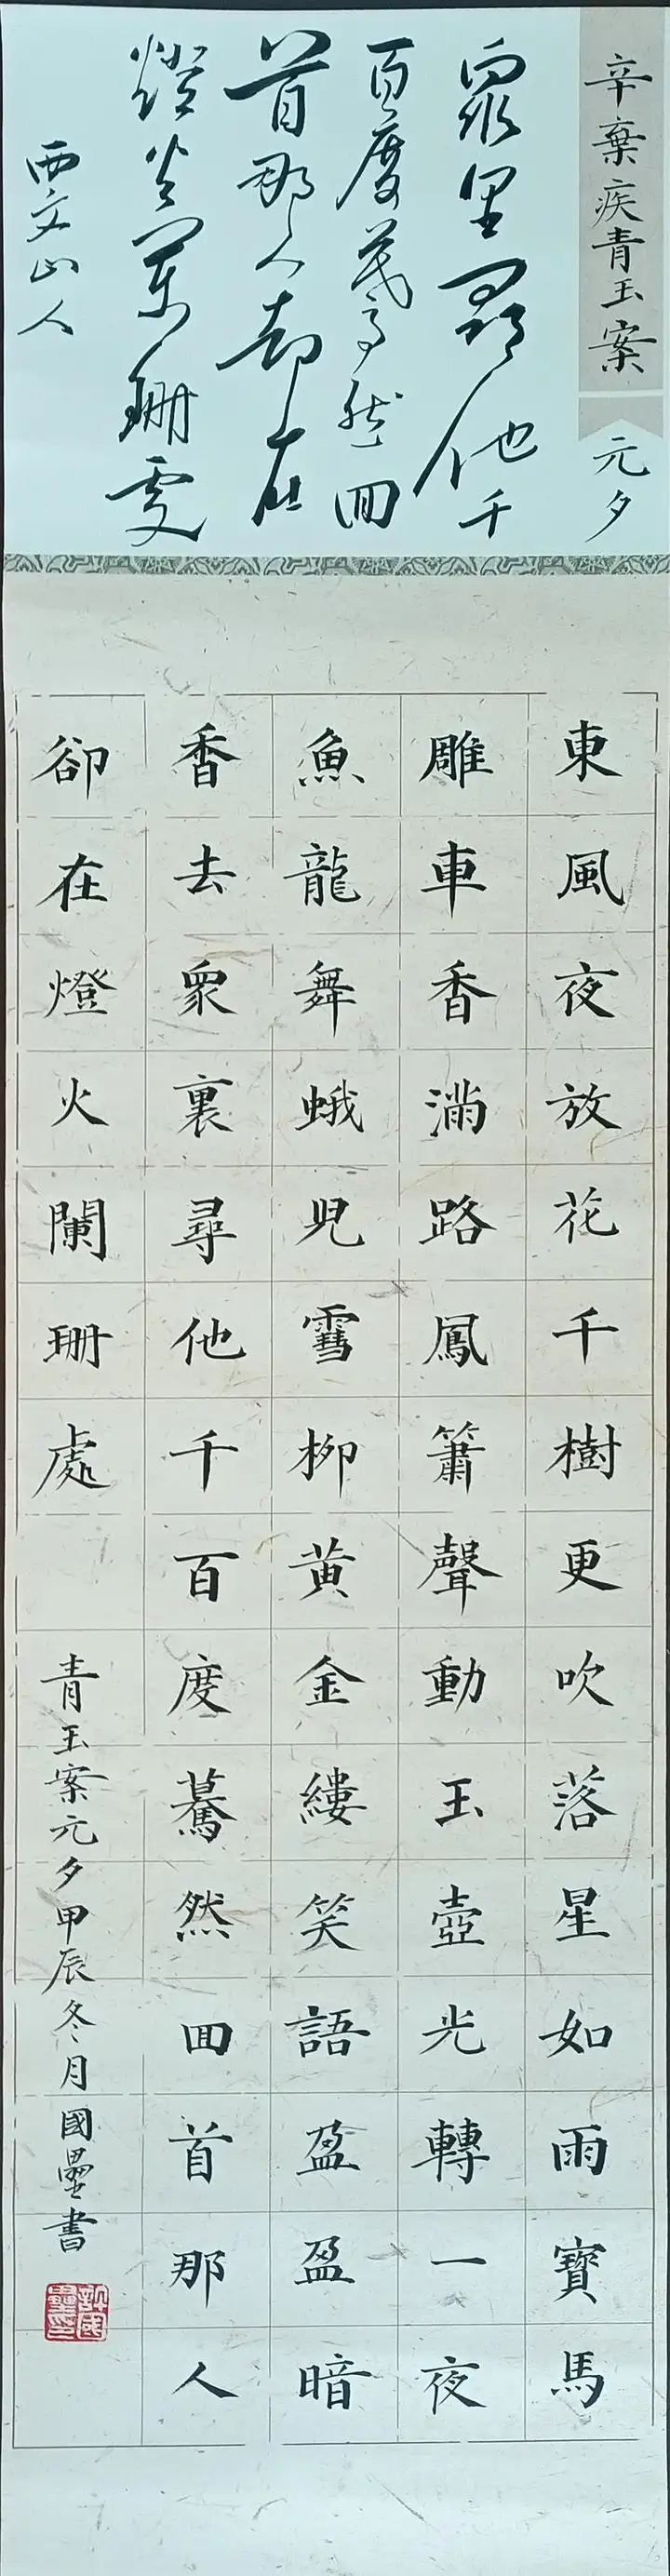 辛棄疾青玉案
元夕
衆里尋他千
百度驀然回
首那人却在
燈火闌珊處
西文山人
東風夜放花千樹更吹落星如雨寶馬
雕車香滿路鳳簫聲動玉壺光轉一夜
魚龍舞蛾兒雪柳黃金縷笑語盈盈暗
香去衆裏尋他千百度驀然回首那人
卻在燈火闌珊處
青玉案元夕甲辰冬月國壘書
許國壘印